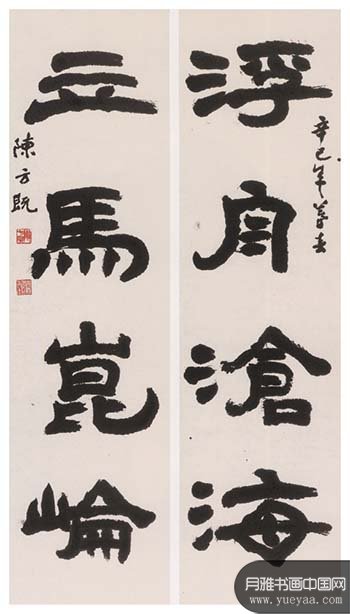 浮舟滄海
辛巳年暮春
立馬崑崘
陳方既
月雅书画中国网
www.yueyaa.com